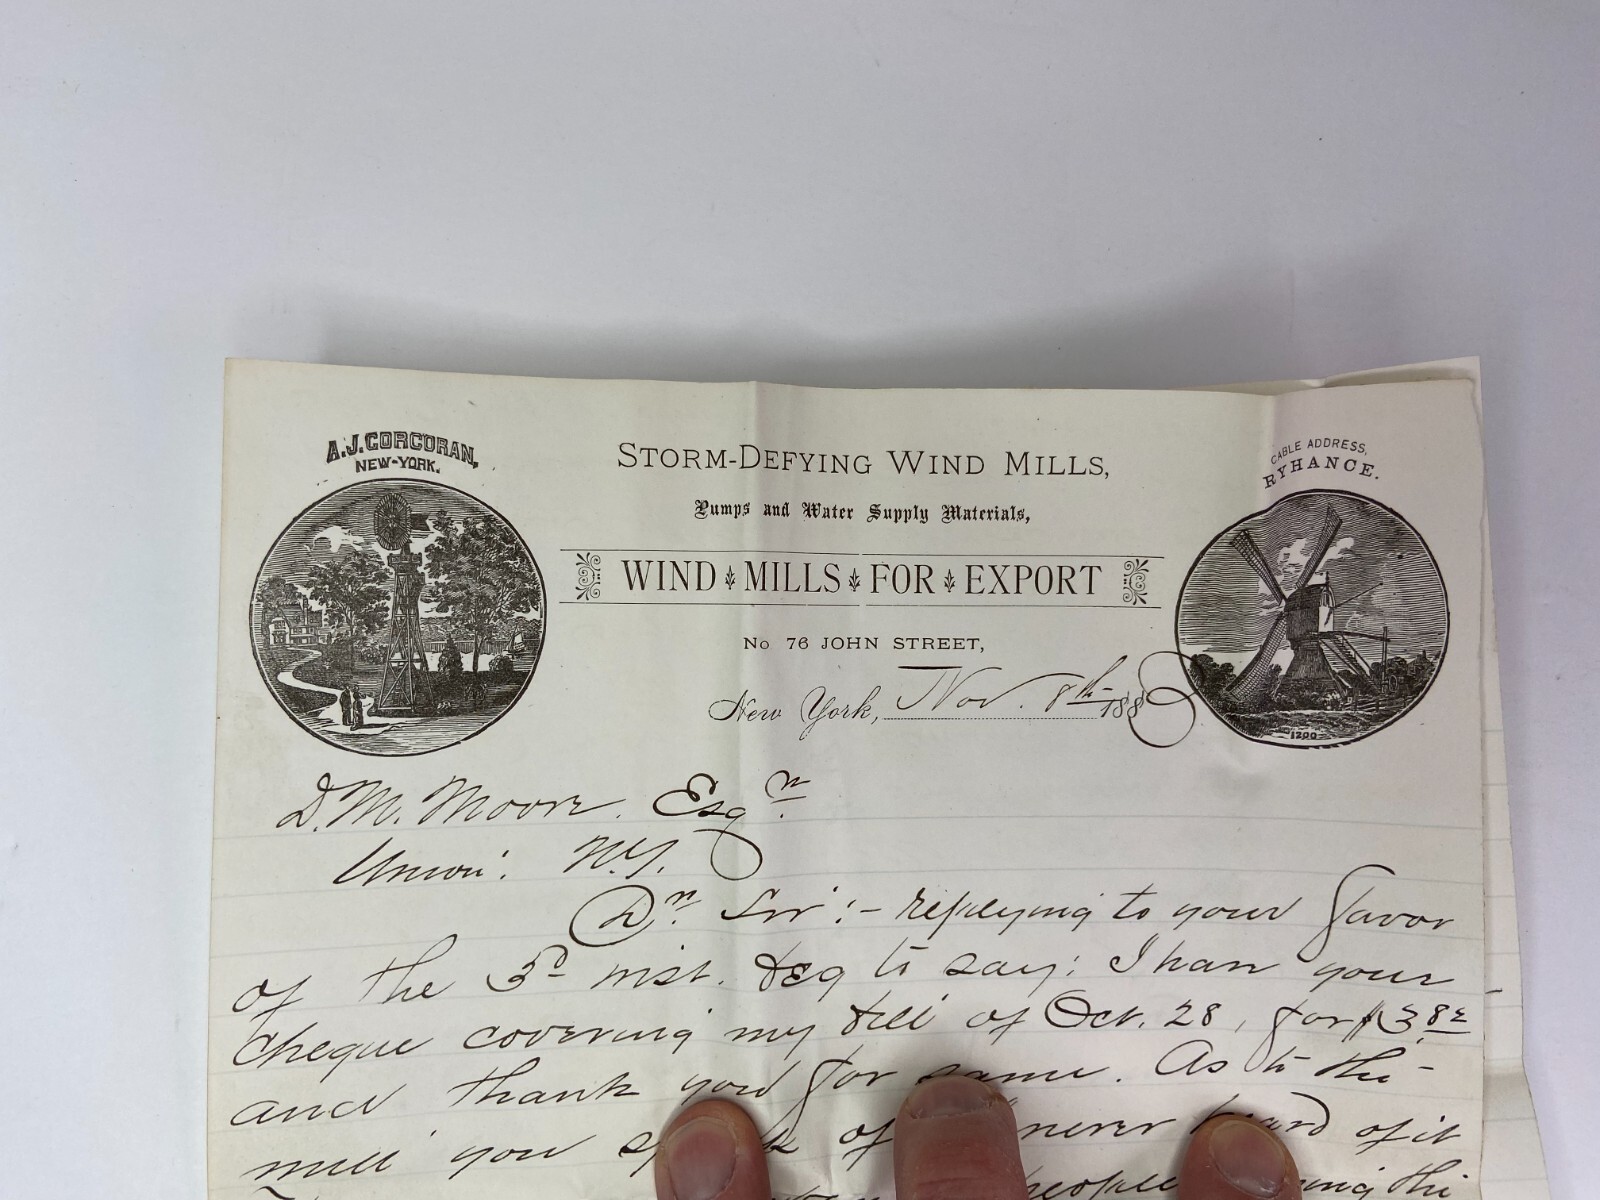 A.J. CORCORAN,
NEW-YORK.
STORM-DEFYING WIND MILLS,
Pumps and Water Supply Materials,
WIND MILLS FOR EXPORT
No 76 JOHN STREET,
New York, Nov. 8th 188
CABLE ADDRESS,
RYHANCE.
1200
D. M. Moore. Esqr.
Union: N.J.
Dr. Sir:- replying to your favor
of the 3d inst. beg to say: I have your
cheque covering my bill of Oct. 28, for $3.82
and thank you for same. As to the
mill you of never heard of it
people the